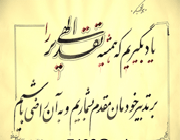 یاد بگیریم که همیشه تقدیر الهی را
بر تدبیر خودمان مقدم بشماریم و به آن راضی باشیم